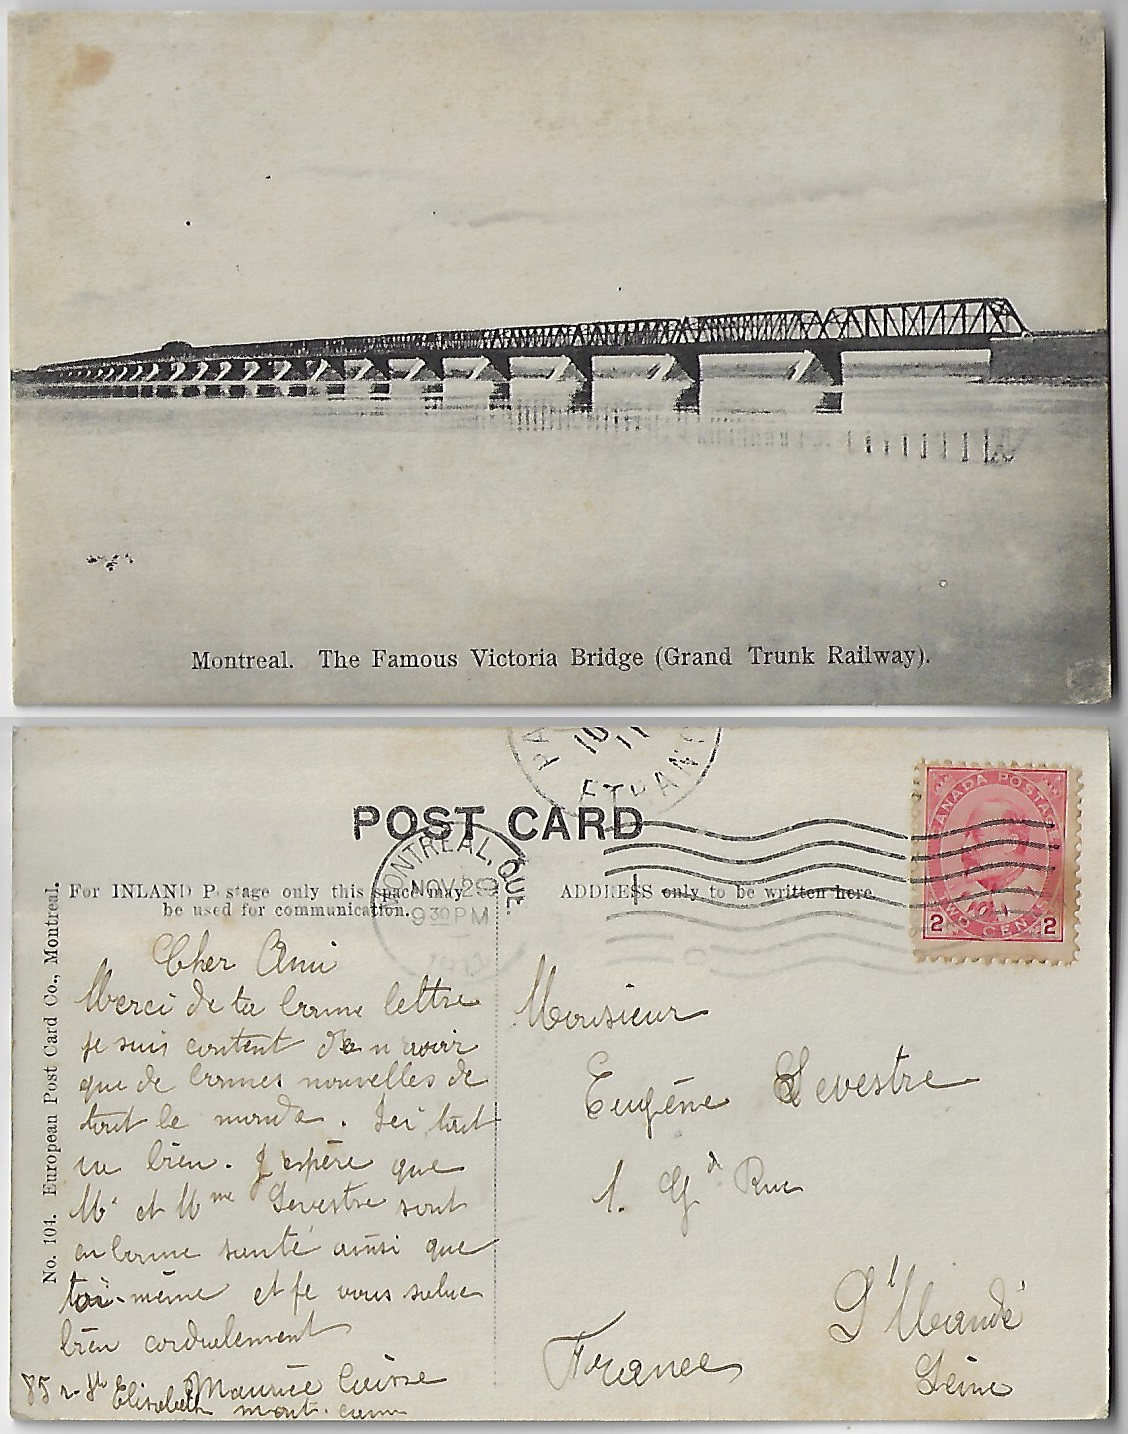 Montreal. The Famous Victoria Bridge (Grand Trunk Railway).
POST CARD
For INLAND Postage only this space may
be used for communication.
ADDRESS only to be written here.
No. 104. European Post Card Co., Montreal.
MONTREAL, QUE.
NOV 29
9 30 PM
1911
ETRANG
CANADA POSTAGE
2 TWO CENTS 2
Cher Ami
Merci de ta bonne lettre
je suis content de n'avoir
que de bonnes nouvelles de
tout le monde. Ici tout
va bien. J'espère que
Mr et Mme Sevestre sont
en bonne santé ainsi que
toi-même et je vous salue
bien cordialement
Maurice
85 r. St Elisabeth
Monsieur
Eugène Sevestre
1. Gd Rue
St Mandé
Seine
France